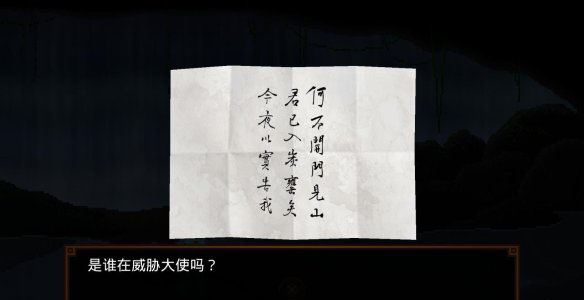 何不開門見山
君已入炭甕矣
今夜以實告我
是谁在威胁大使吗？